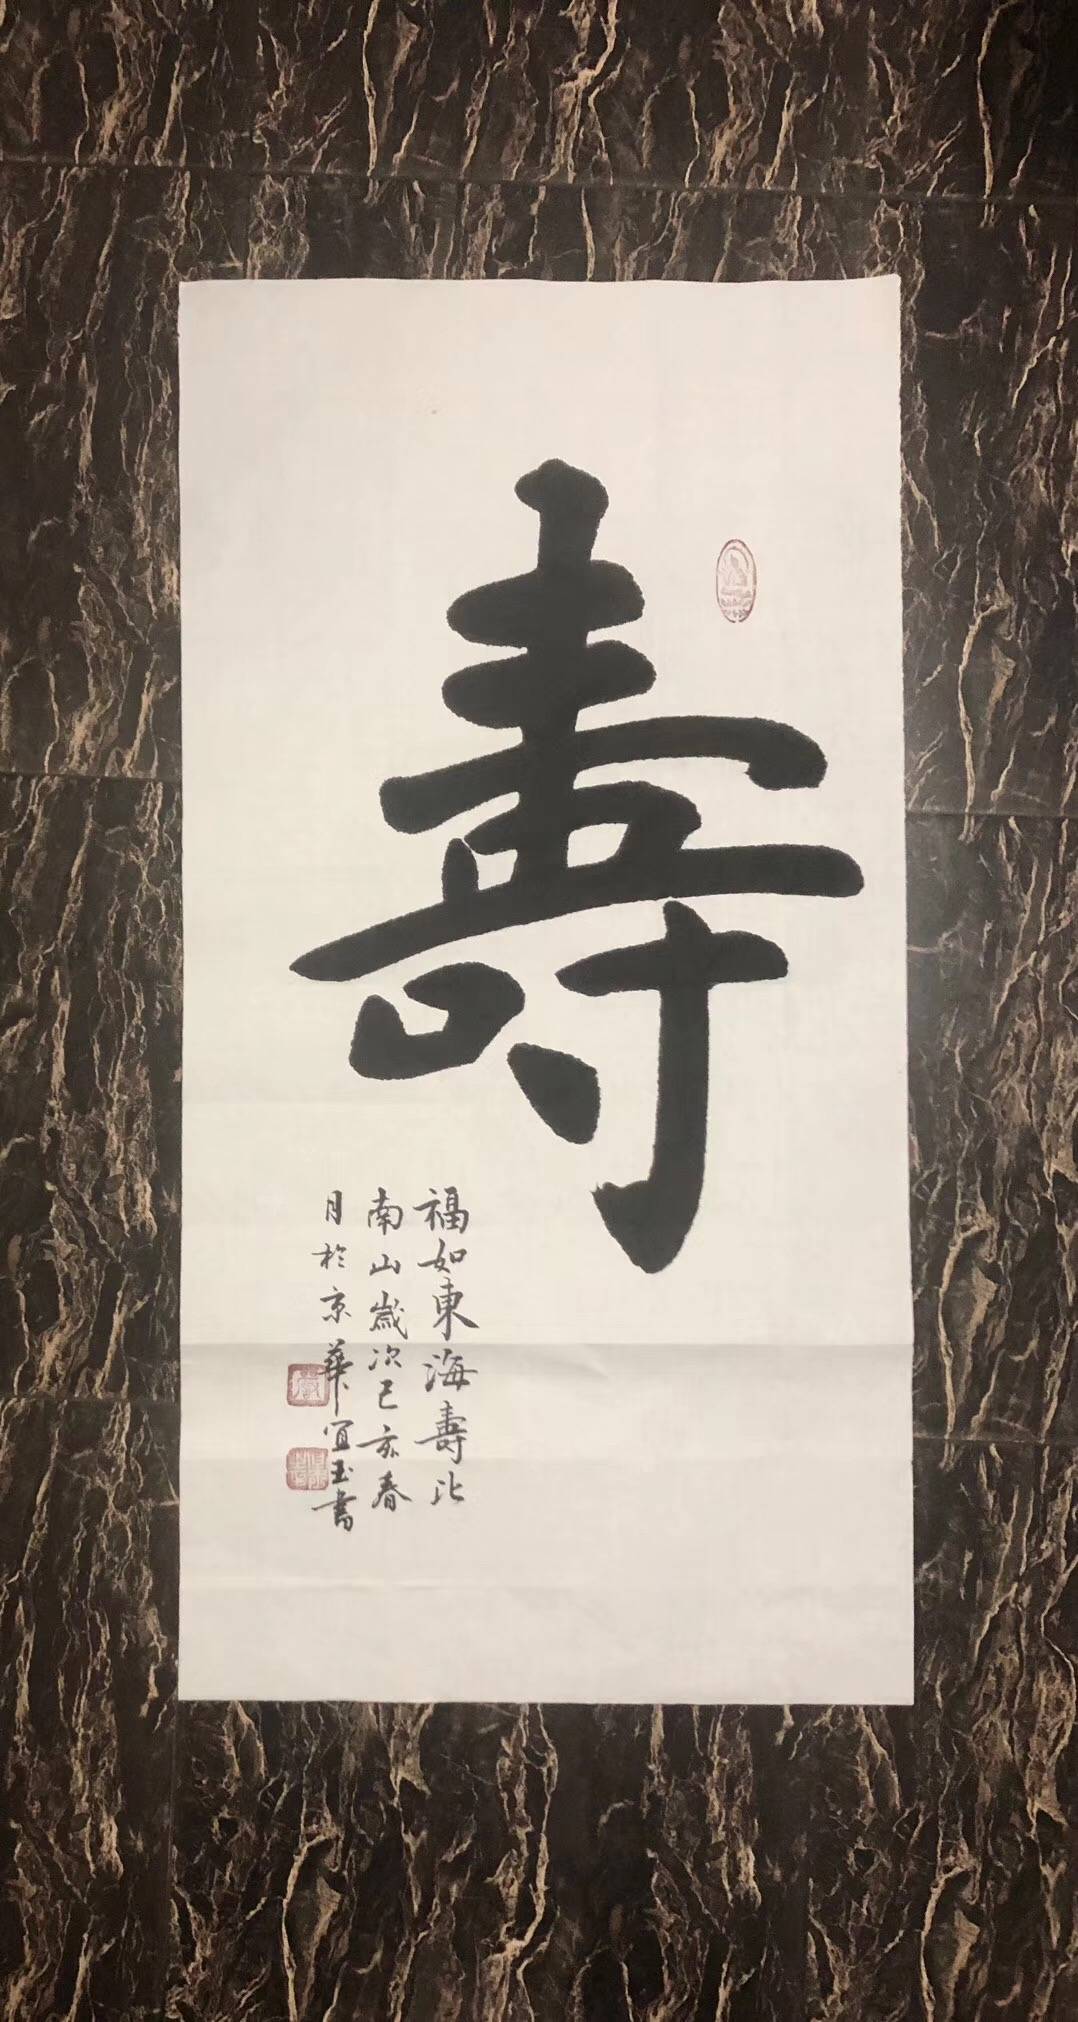 壽
福如東海壽比
南山歲次己亥春
月於京華宜玉書